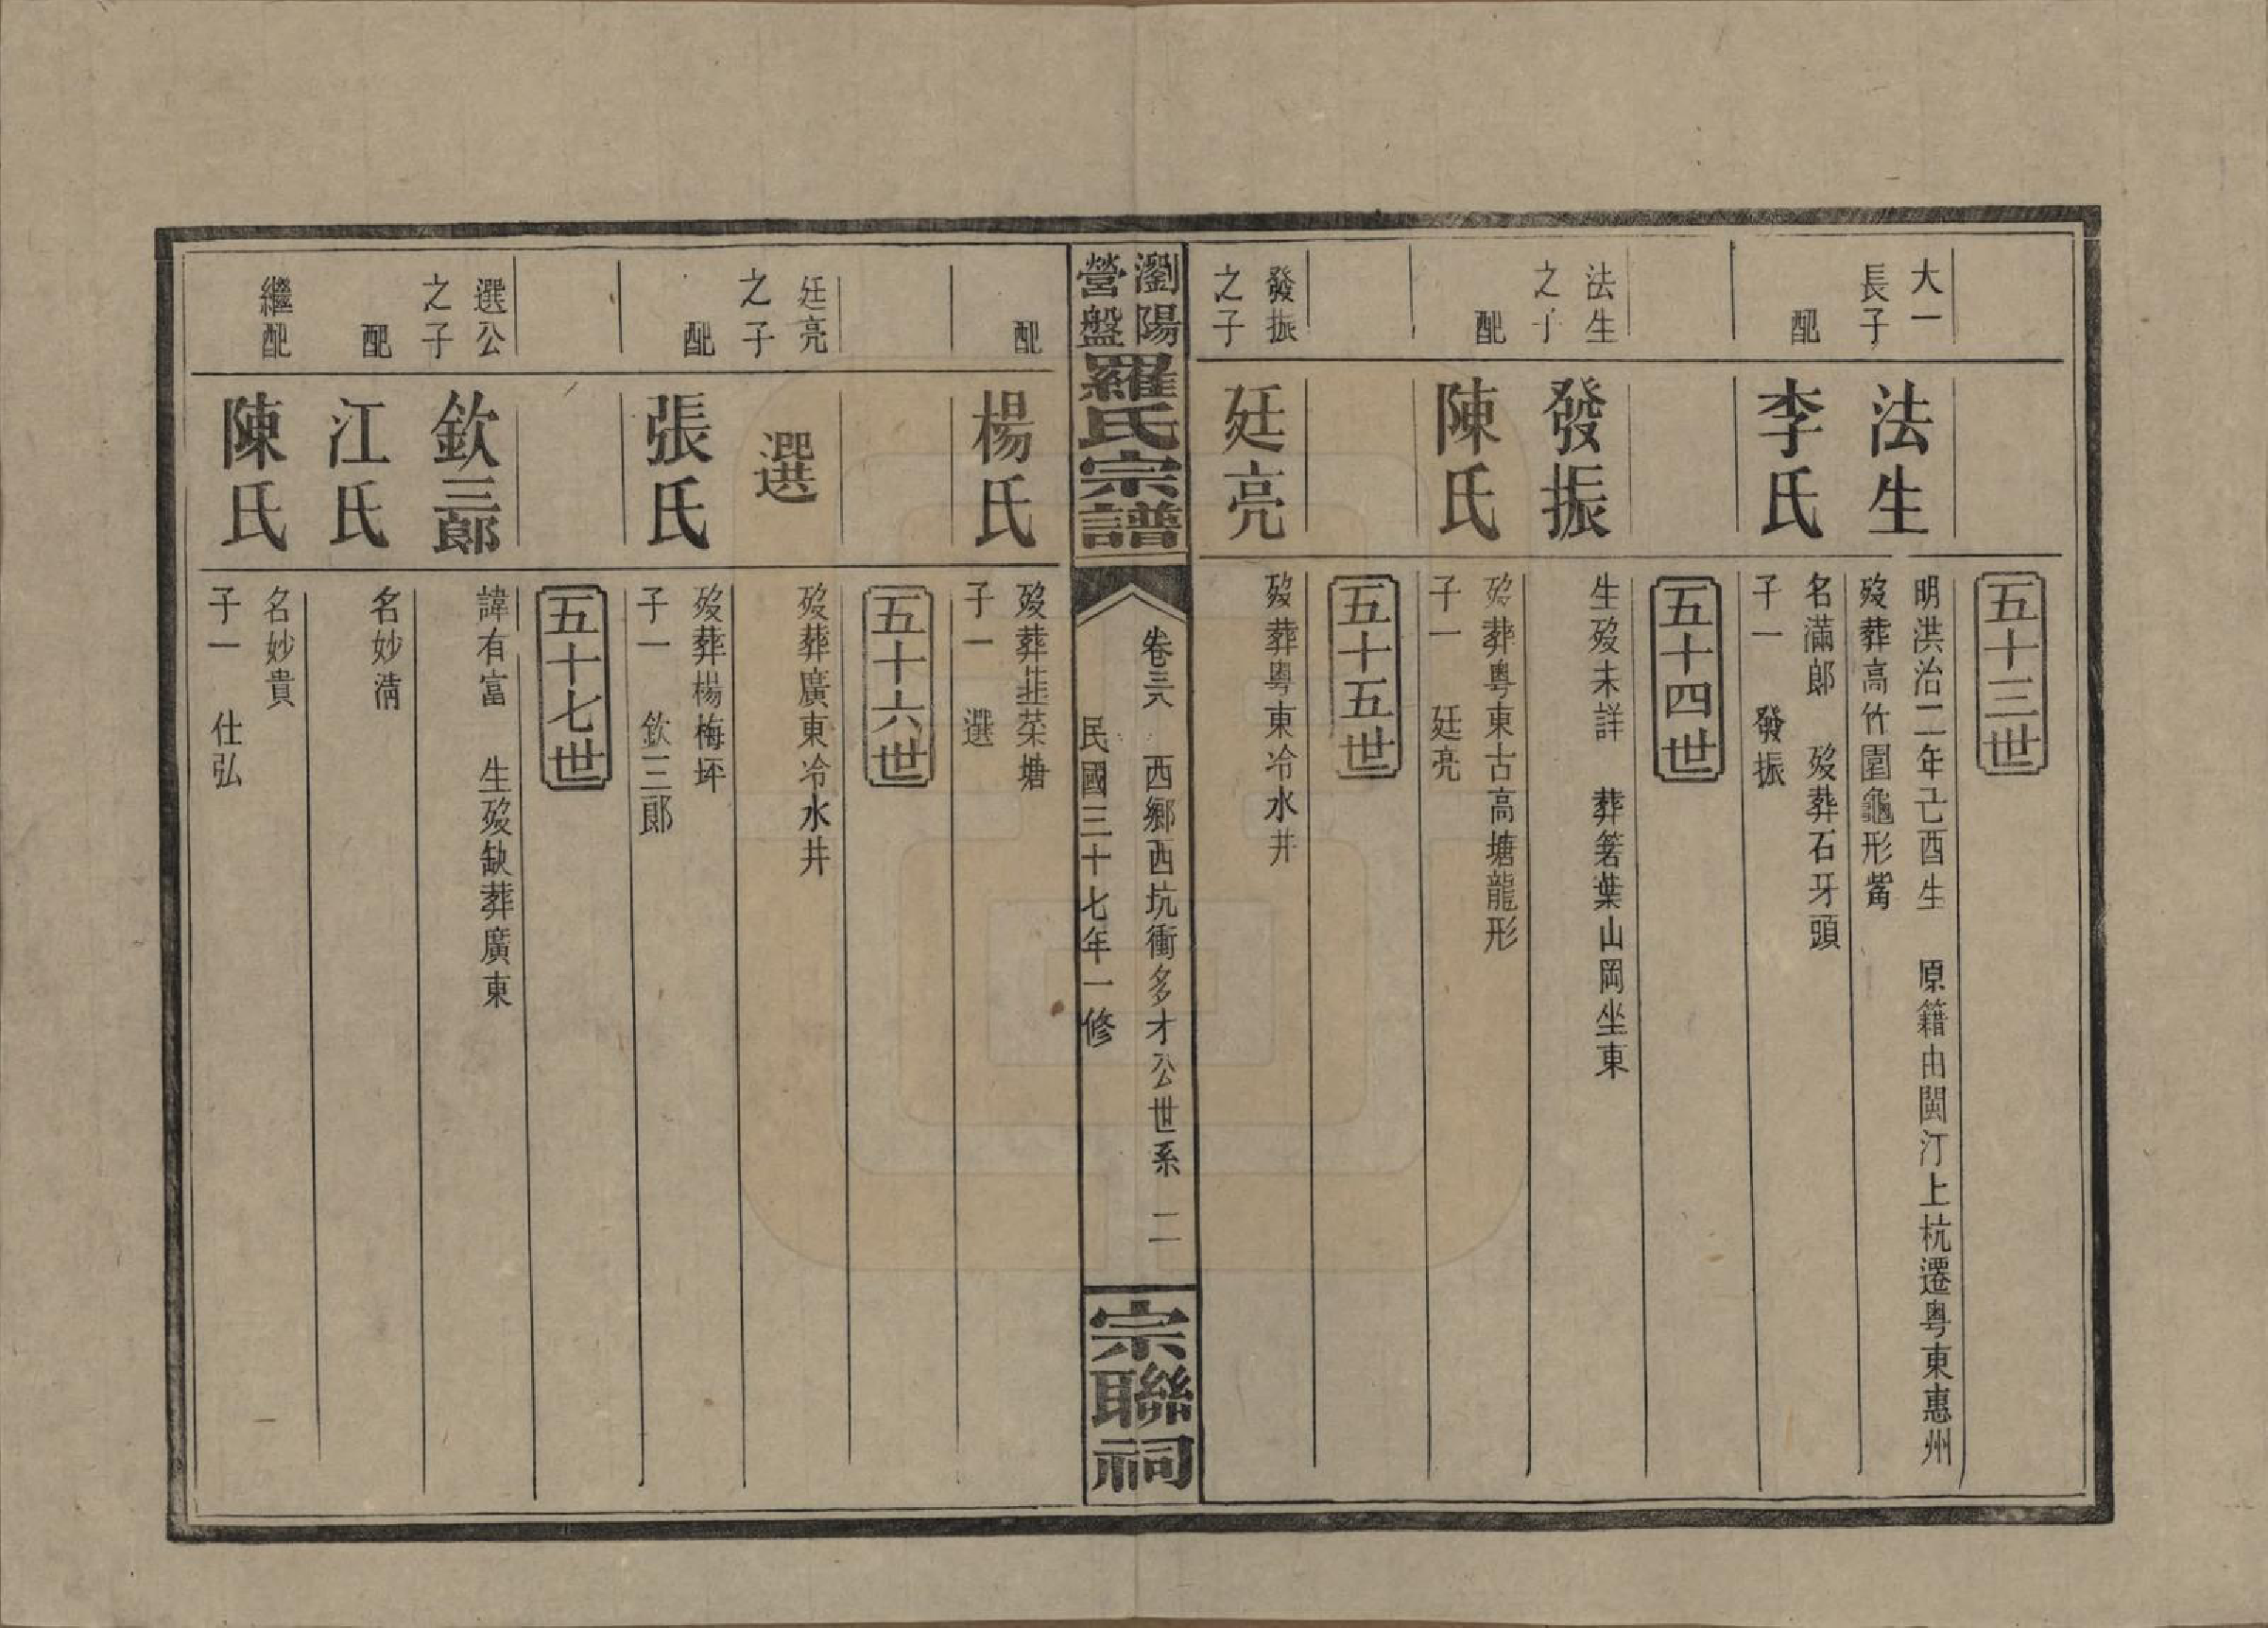 五十三世
大一
長子
法生
明洪治二年己酉生　原籍由閩汀上杭遷粵東惠州
歿葬高竹園龜形觜
配
李氏
名滿郎　歿葬石牙頭
子一　發振
五十四世
法生
之子
發振
生歿未詳　葬箬葉山岡坐東
配
陳氏
歿葬粵東古高塘龍形
子一　廷亮
五十五世
發振
之子
廷亮
歿葬粵東冷水井
瀏陽
營盤
羅氏宗譜
卷三八　西鄉西坑衝多才公世系　二
民國三十七年一修
宗聯祠
配
楊氏
歿葬韭菜塘
子一　選
五十六世
廷亮
之子
選
歿葬廣東冷水井
配
張氏
歿葬楊梅坪
子一　欽三郎
五十七世
選公
之子
欽三郎
諱有富　生歿缺葬廣東
配
江氏
名妙清
繼配
陳氏
名妙貴
子一　仕弘